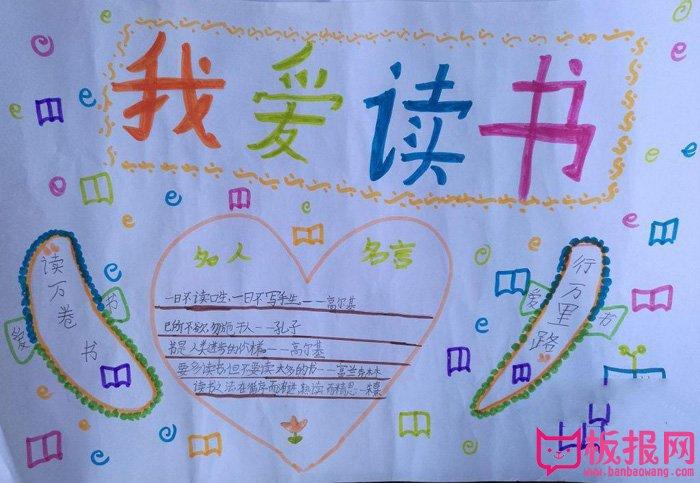 我爱读书
名人 名言
一日不读口生,一日不写手生。——高尔基
己所不欲,勿施于人——孔子
书是人类进步的阶梯。——高尔基
要多读书,但不要读太多的书——富兰克林
读书之法在循序而渐进,熟读而精思—朱熹
读万卷书
爱
书
行万里路
爱
书
板报网
www.banbaowang.com